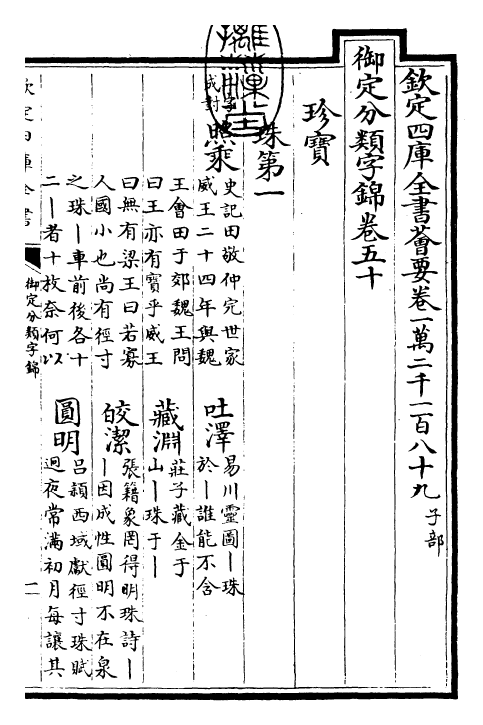 欽定四庫全書薈要卷一萬二千一百八十九 子部
御定分類字錦卷五十
珍寶
珠第一
成對
照乘
史記田敬仲完世家
威王二十四年與魏
王會田于郊魏王問
曰王亦有寶乎威王
曰無有梁王曰若寡
人國小也尚有徑寸
之珠丨車前後各十
二丨者十枚奈何以
吐澤
易川靈圖丨珠
於丨誰能不含
藏淵
莊子藏金于
山丨珠于丨
皎潔
張籍象罔得明珠詩丨
丨因成性圓明不在泉
圓明
呂頴西域獻徑寸珠賦
迥夜常滿初月每讓其
欽定四庫全書
御定分類字錦